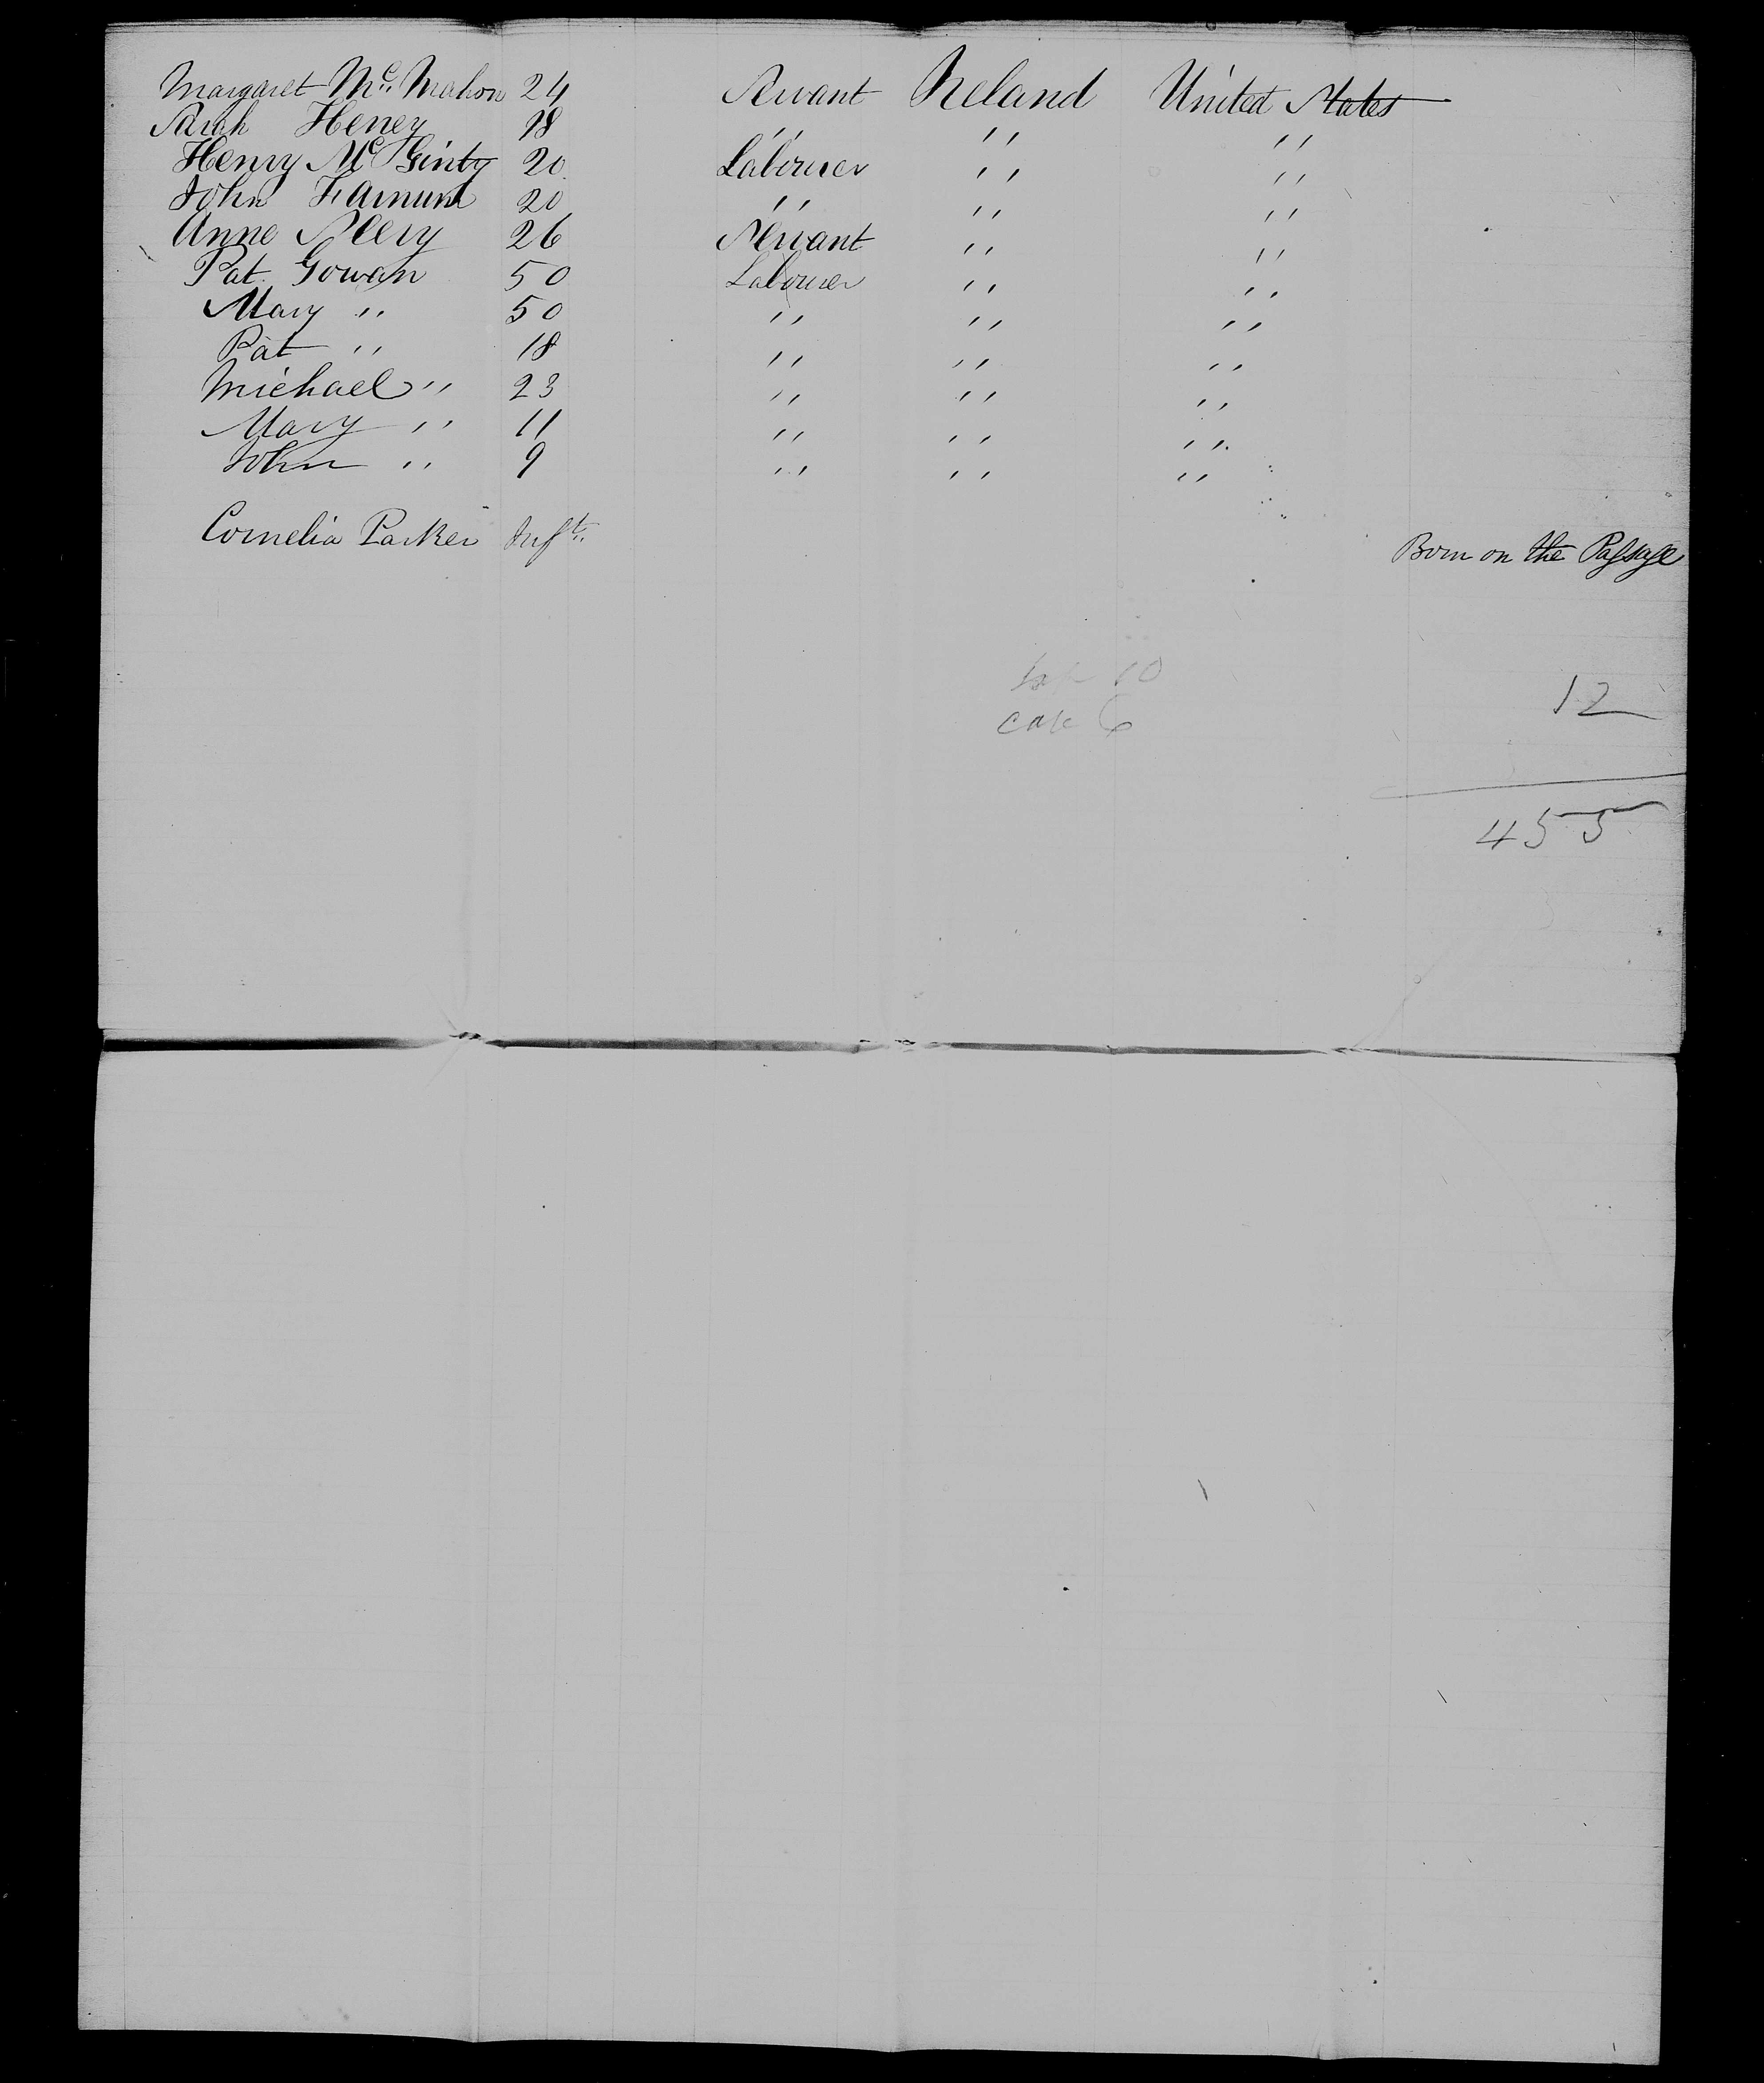 Margaret Mc. Mahon 24 Servant Ireland United States
Sarah Heney 18 " " "
Henry Mc Ginty 20 Labourer " "
John Farnum 20 " " "
Anne Sleery 26 Servant " "
Pat. Gowan 50 Labourer " "
Mary " 50 " " "
Pat " 18 " " "
Michael " 23 " " "
Mary " 11 " " "
John " 9 " " "
Cornelia Parker Inft. Born on the Passage
10
6
12
455